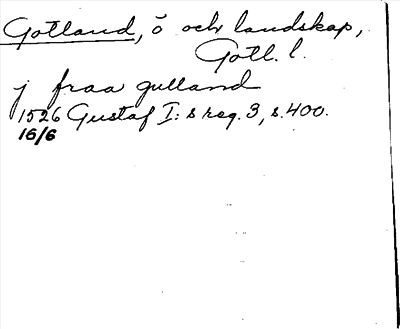 Gotland, ö och landskap,
Gotl. l.
j fraa gulland
1526 Gustaf I:s reg. 3, s. 400.
16/6